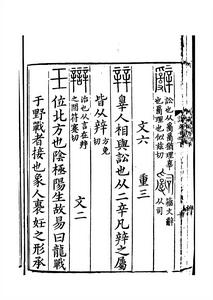 辭 訟也从𤔔𤔔猶理辜也𤔔理也似兹切 籒文辭从司
文六 重三
辡 辠人相與訟也从二辛凡辡之屬
皆从辡 方免切
辯 治也从言在辡之間符蹇切 文二
壬 位北方也陰極陽生故易曰龍戰
于野戰者接也象人褢妊之形承